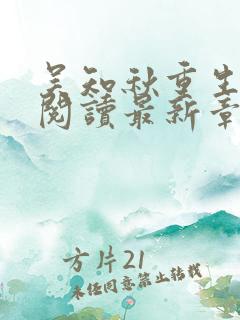 吴知秋重生
閱讀最新章
方片21
未经同意禁止转载